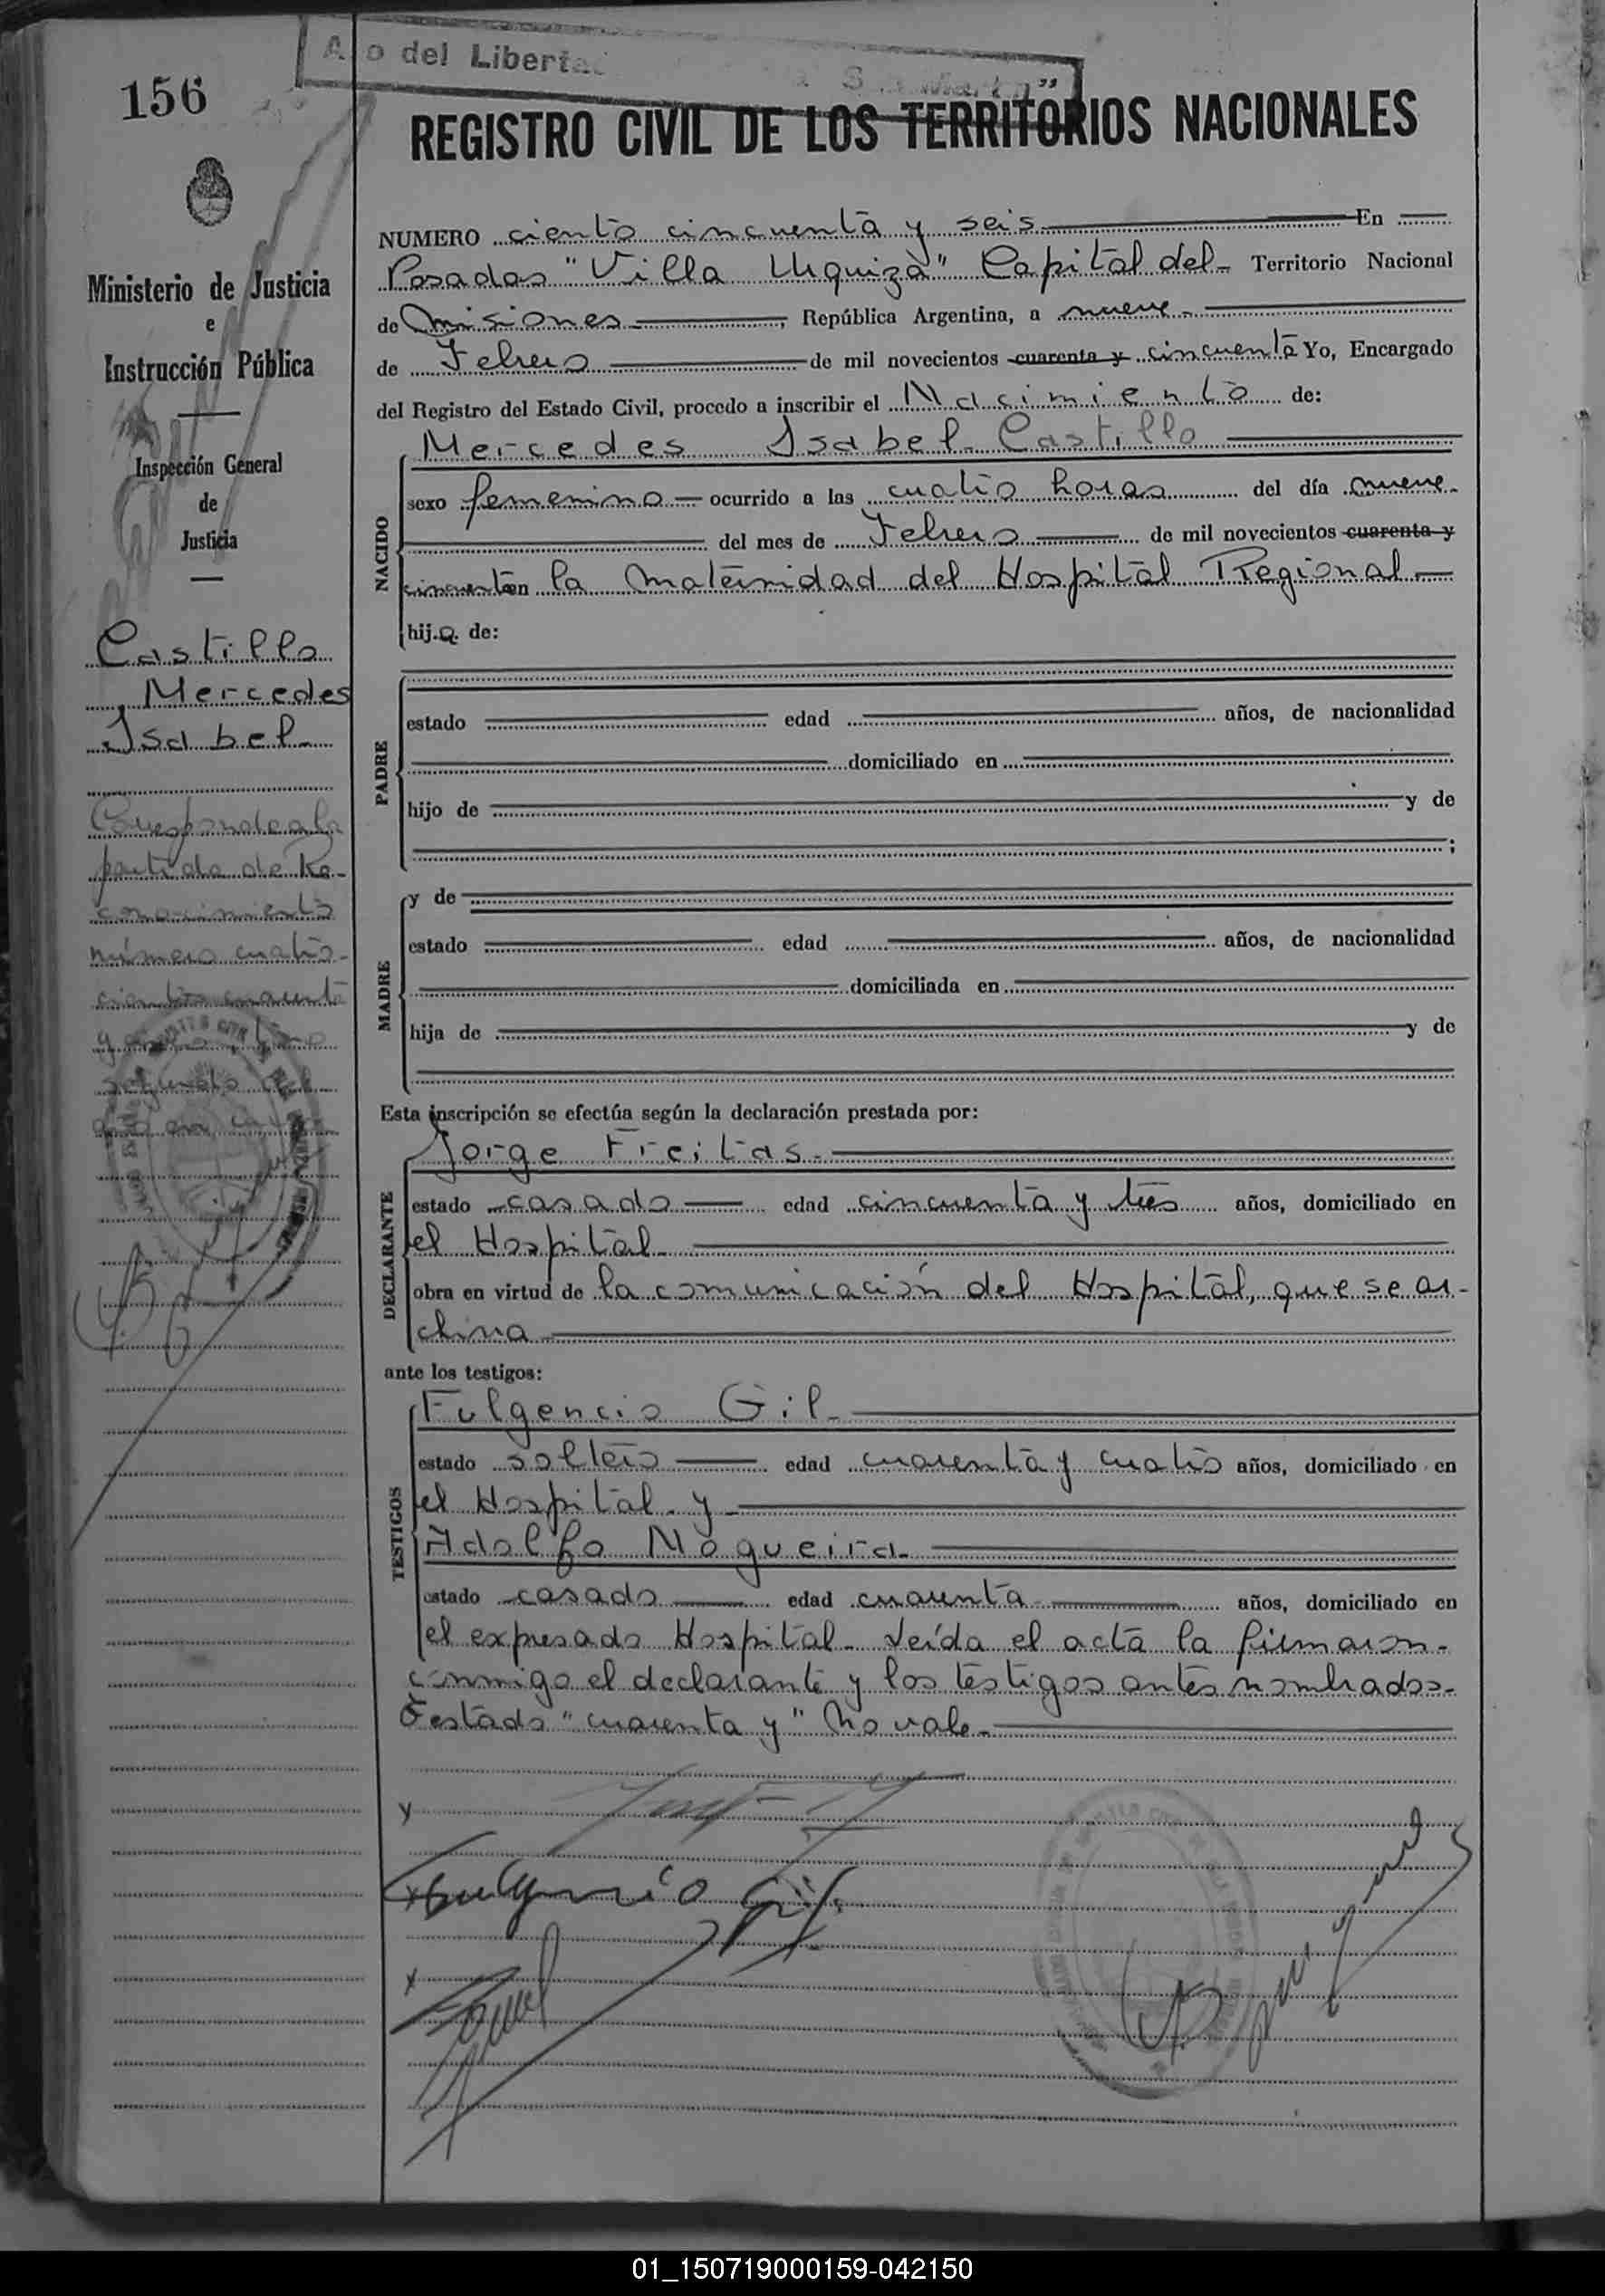 156
Año del Libertador San Martín"
REGISTRO CIVIL DE LOS TERRITORIOS NACIONALES
Ministerio de Justicia
e
Instrucción Pública
Inspección General
de
Justicia
Castillo
Mercedes
Isabel
Corresponde a la
partida de Re-
conocimiento
número cuatro-
cientos cuarenta
y
segundo del
NUMERO ciento cincuenta y seis En
Posadas "Villa Urquiza" Capital del Territorio Nacional
de Misiones, República Argentina, a nueve
de Febrero de mil novecientos cuarenta y cincuenta Yo, Encargado
del Registro del Estado Civil, procedo a inscribir el Nacimiento de:
NACIDO
Mercedes Isabel Castillo
sexo femenino ocurrido a las cuatro horas del día nueve
del mes de Febrero de mil novecientos cuarenta y
cincuenta en la Maternidad del Hospital Regional
hij a de:
PADRE
estado edad años, de nacionalidad
domiciliado en
hijo de y de
;
MADRE
y de
estado edad años, de nacionalidad
domiciliada en
hija de y de
Esta inscripción se efectúa según la declaración prestada por:
DECLARANTE
Jorge Freitas
estado casado edad cincuenta y tres años, domiciliado en
el Hospital
obra en virtud de la comunicación del Hospital, que se ar-
chiva
ante los testigos:
TESTIGOS
Fulgencio Gil
estado soltero edad cuarenta y cuatro años, domiciliado en
el Hospital y
Adolfo Nogueira
estado casado edad cuarenta años, domiciliado en
el expresado Hospital. Leída el acta la firmaron
conmigo el declarante y los testigos antes nombrados.
Testado "cuarenta y" No vale
Fulgencio Gil
01_150719000159-042150